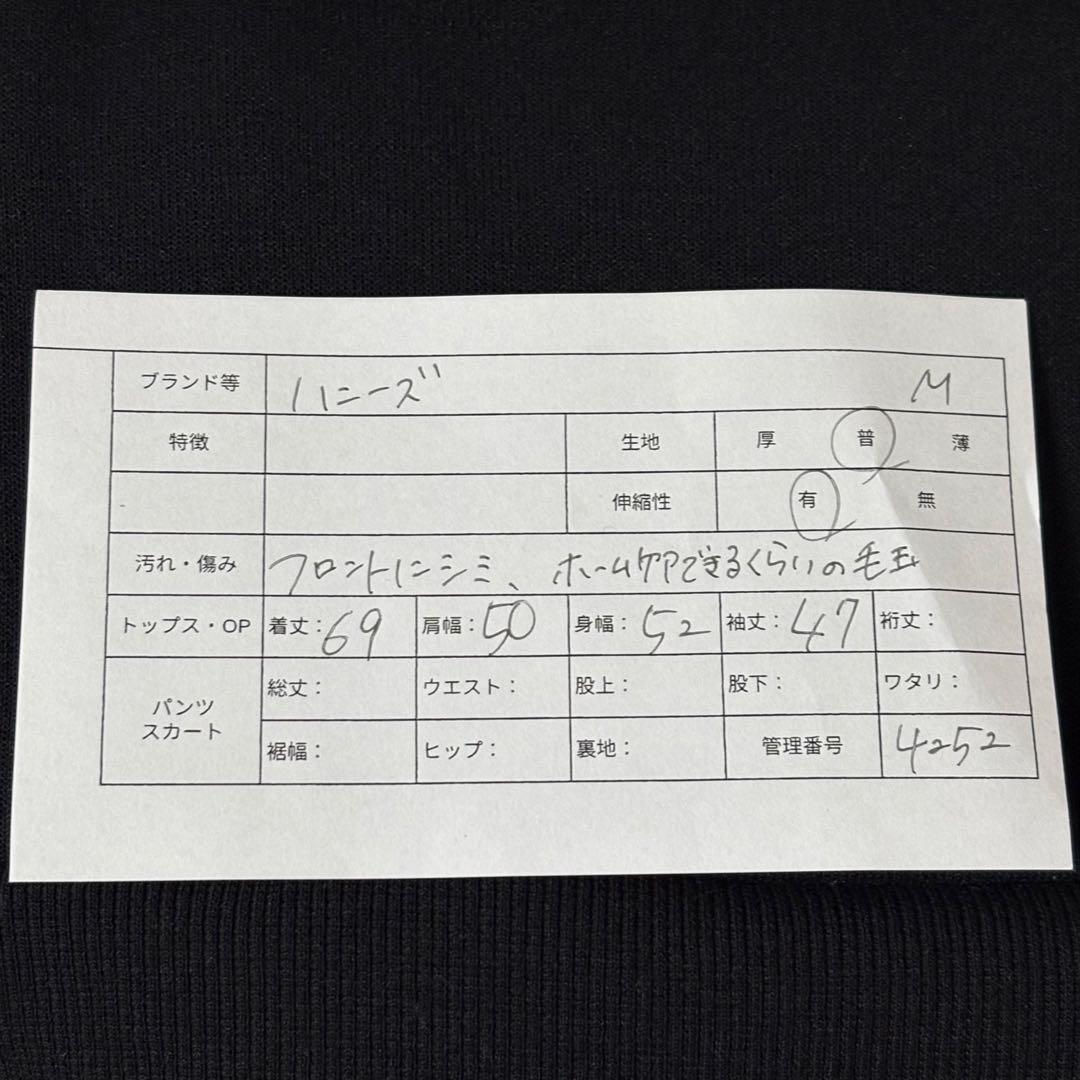 ブランド等 ハニーズ M
特徴 生地 厚 普 薄
伸縮性 有 無
汚れ・傷み フロントにシミ、ホームケアできるくらいの毛玉
トップス・OP 着丈：69 肩幅：50 身幅：52 袖丈：47 裄丈：
パンツ スカート 総丈： ウエスト： 股上： 股下： ワタリ：
裾幅： ヒップ： 裏地： 管理番号 4252